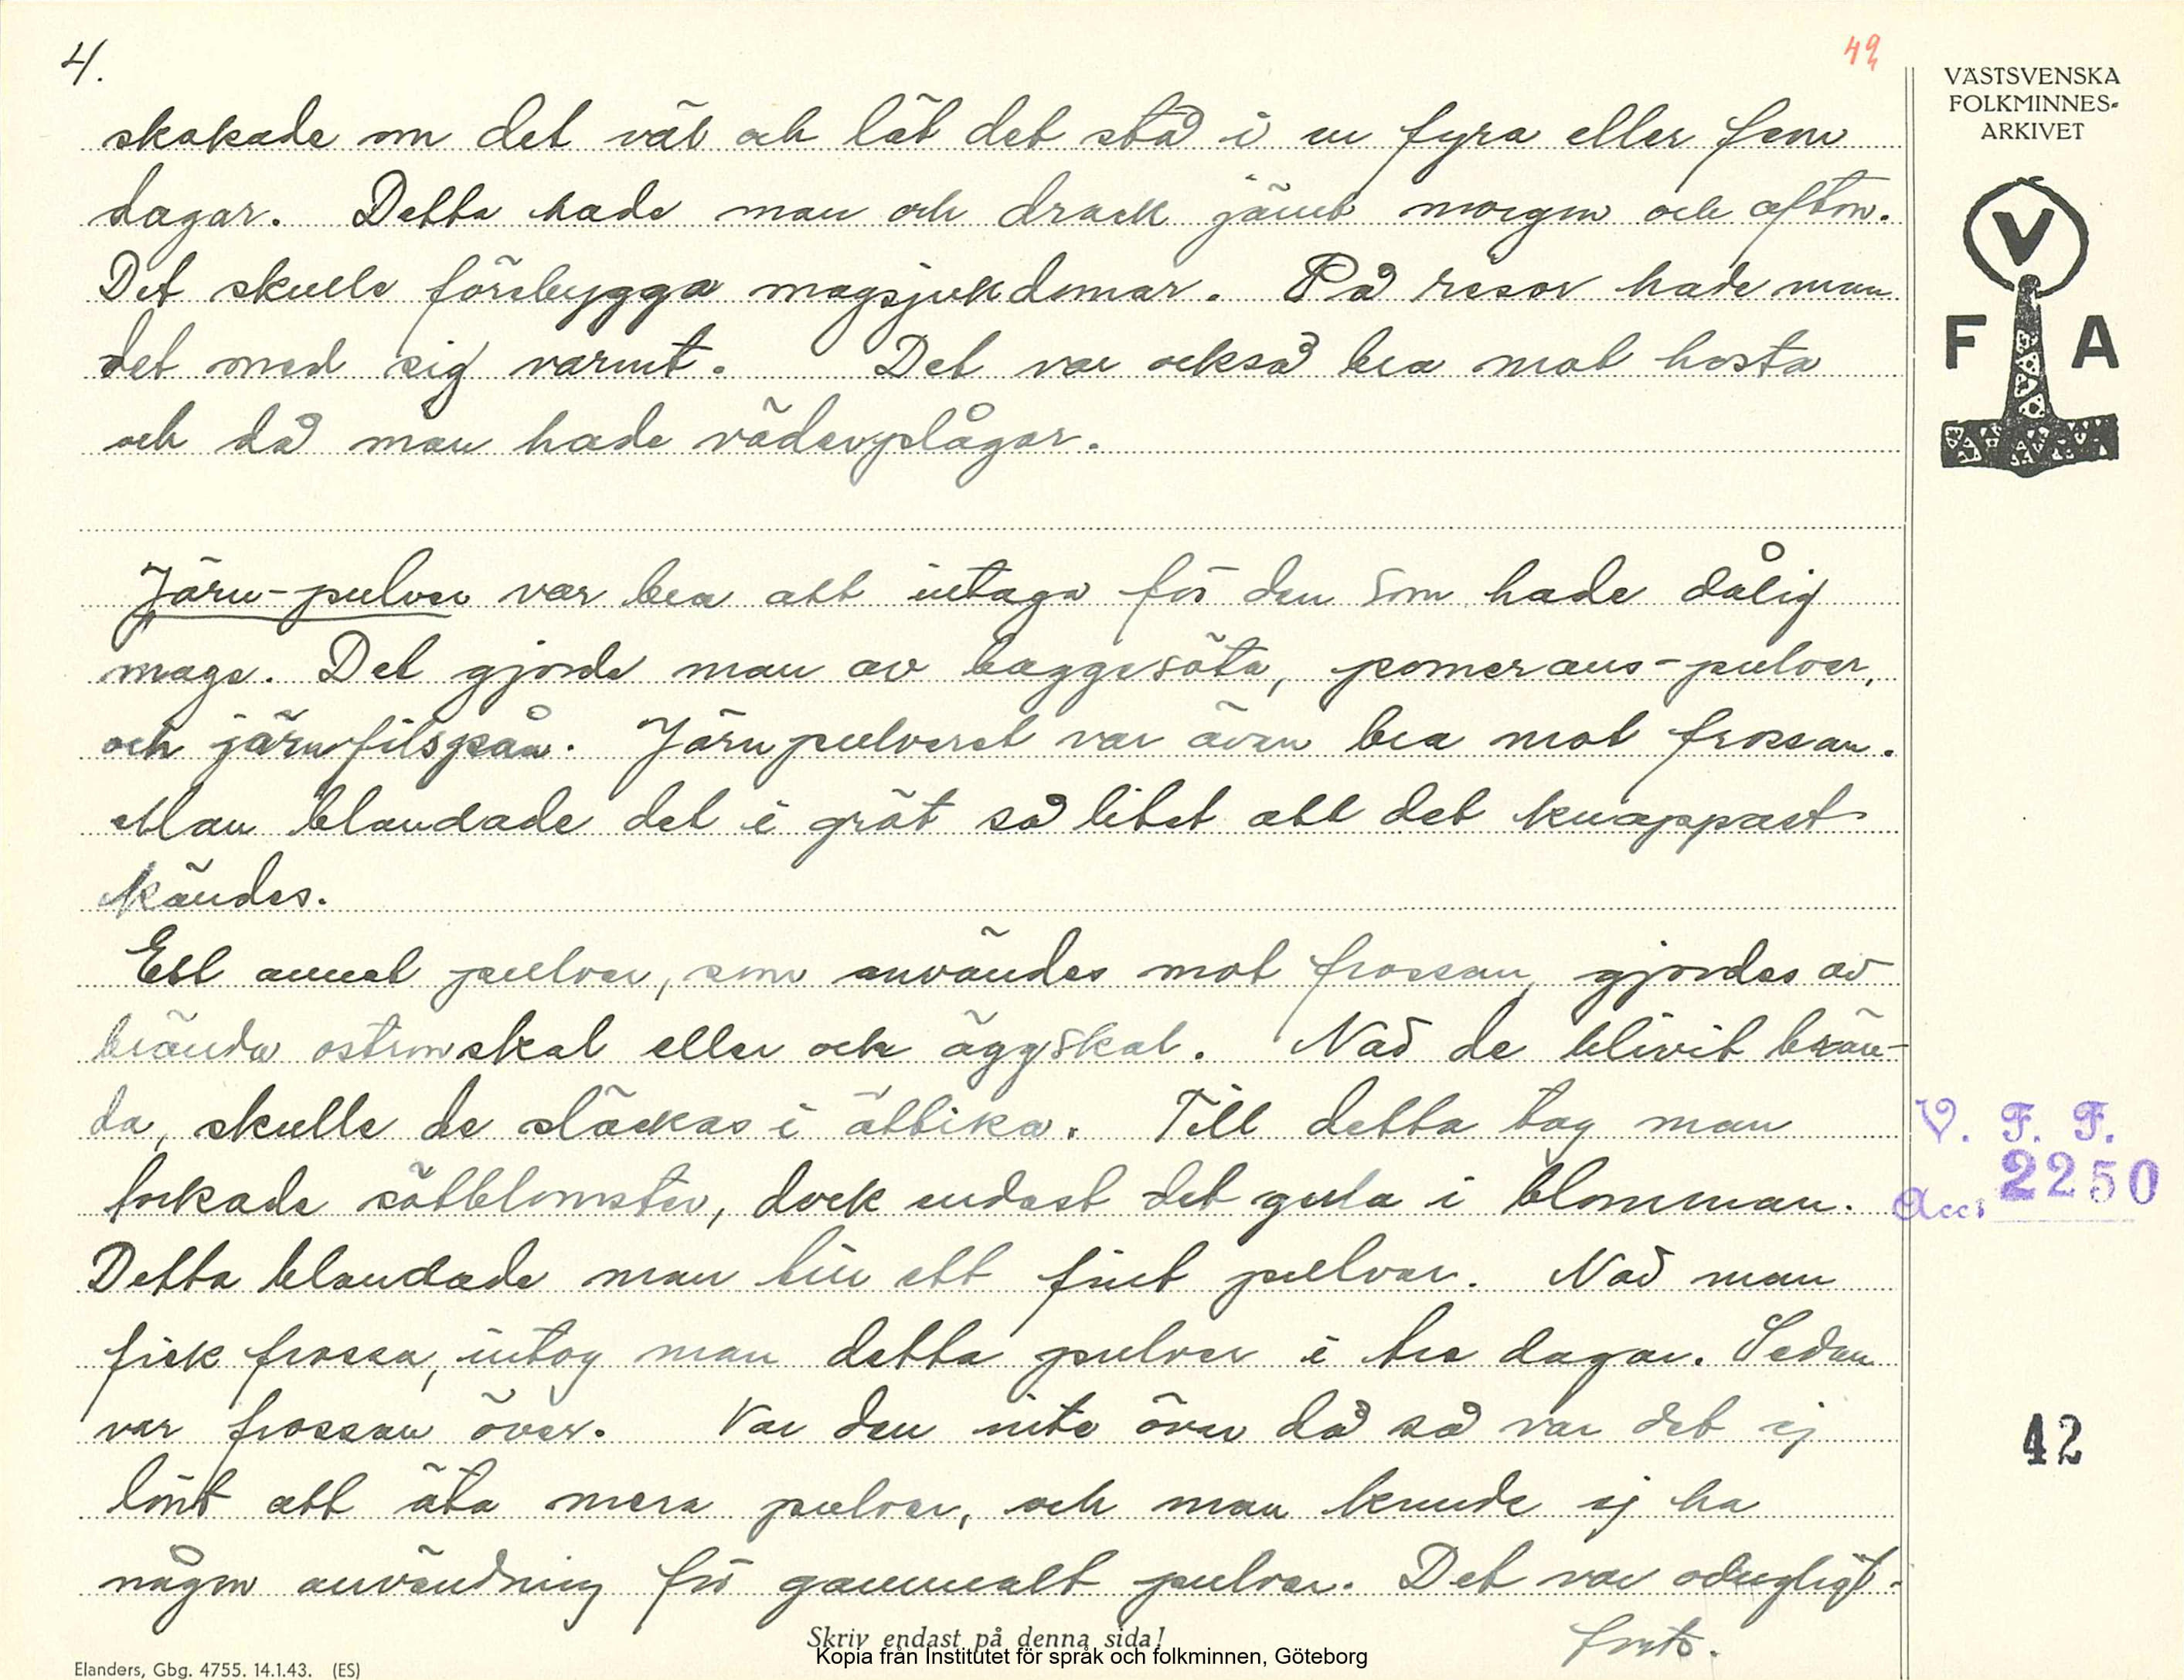 4.
49
VÄSTSVENSKA
FOLKMINNES-
ARKIVET
V
F A
skakade om det väl och lät det stå i en fyra eller fem
dagar. Detta hade man och drack jämt morgon och afton.
Det skulle förebygga magsjukdomar. På resor hade man
det med sig varmt. Det var också bra mot hosta
och då man hade väderplågor.
Järn-pulver var bra att intaga för den som hade dålig
mage. Det gjorde man av baggesöta, pomerans-pulver,
och järnfilspån. Järnpulveret var även bra mot frossan.
Man blandade det i gröt så litet att det knappast
kändes.
Ett annat pulver, som användes mot frossan, gjordes av
brända ostronskal eller och äggskal. När de blivit brän-
da, skulle de släckas i ättika. Till detta tog man
torkade sötblomster, dock endast det gula i blomman.
Detta blandade man till ett fint pulver. När man
fick frossa, intog man detta pulver i tre dagar. Sedan
var frossan över. Var den inte över då så var det ej
lönt att äta mera pulver, och man kunde ej ha
någon användning för gammalt pulver. Det var odugligt.
forts.
V. F. F.
Acc. 2250
42
Skriv endast på denna sida!
Kopia från Institutet för språk och folkminnen, Göteborg
Elanders, Gbg. 4755. 14.1.43. (ES)